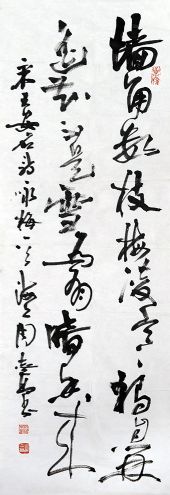 墙角数枝梅凌寒独自开
遥知不是雪为有暗香来
宋王安石诗咏梅一首 周慧珺书